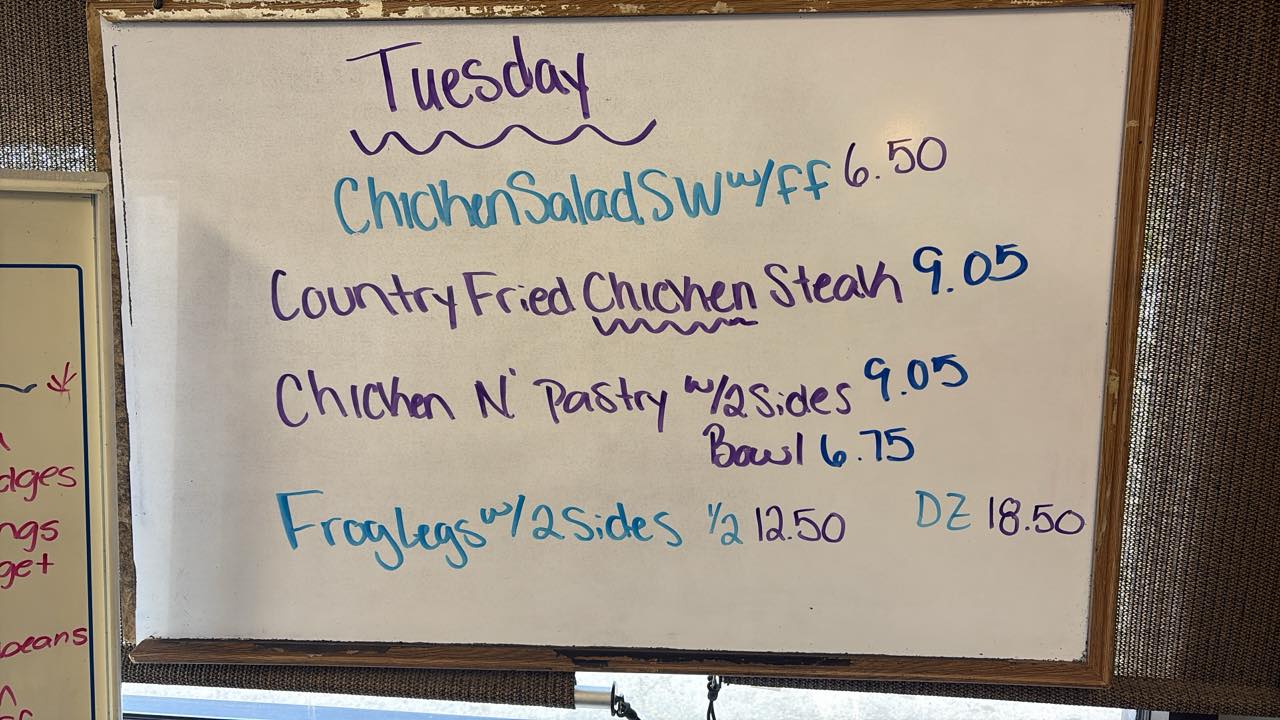 Tuesday
Chicken Salad SW w/ff 6.50
Country Fried Chicken Steak 9.05
Chicken N' Pastry w/2 Sides 9.05
Bowl 6.75
Frog Legs w/2 Sides 1/2 12.50 DZ 18.50
dges
ngs
get
beans